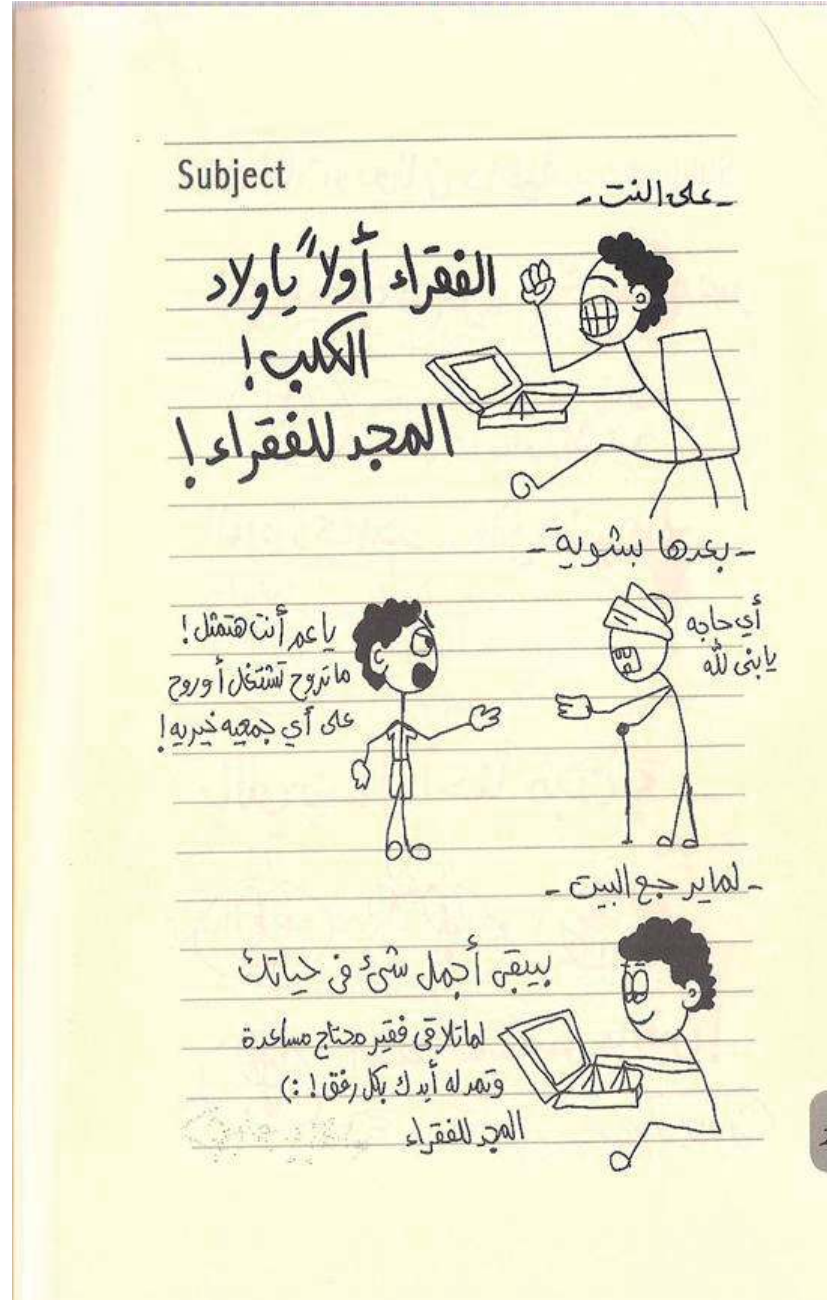 Subject
- على النت -
الفقراء أولاً ياولاد
الكلب !
المجد للفقراء !
- بعدها بشوية -
أي حاجه
يابنى لله
ياعم أنت هتمثل !
ماتروح تشتغل أو روح
على أي جمعيه خيريه !
- لما يرجع البيت -
بيبقى أجمل شئ فى حياتك
لما تلاقى فقير محتاج مساعدة
وتمد له أيدك بكل رفق ! :)
المجد للفقراء